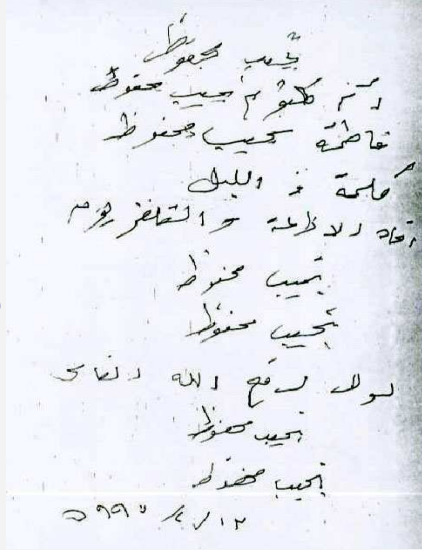 نجيب محفوظ
أم كلثوم نجيب محفوظ
فاطمة نجيب محفوظ
كلمة في الليل
الاذاعة والتلفزيون
نجيب محفوظ
نجيب محفوظ
الله الناس
نجيب محفوظ
نجيب محفوظ